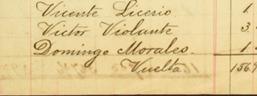 Vicente Licerio 1
Victor Violante 3
Domingo Morales 1
Vuelta 156